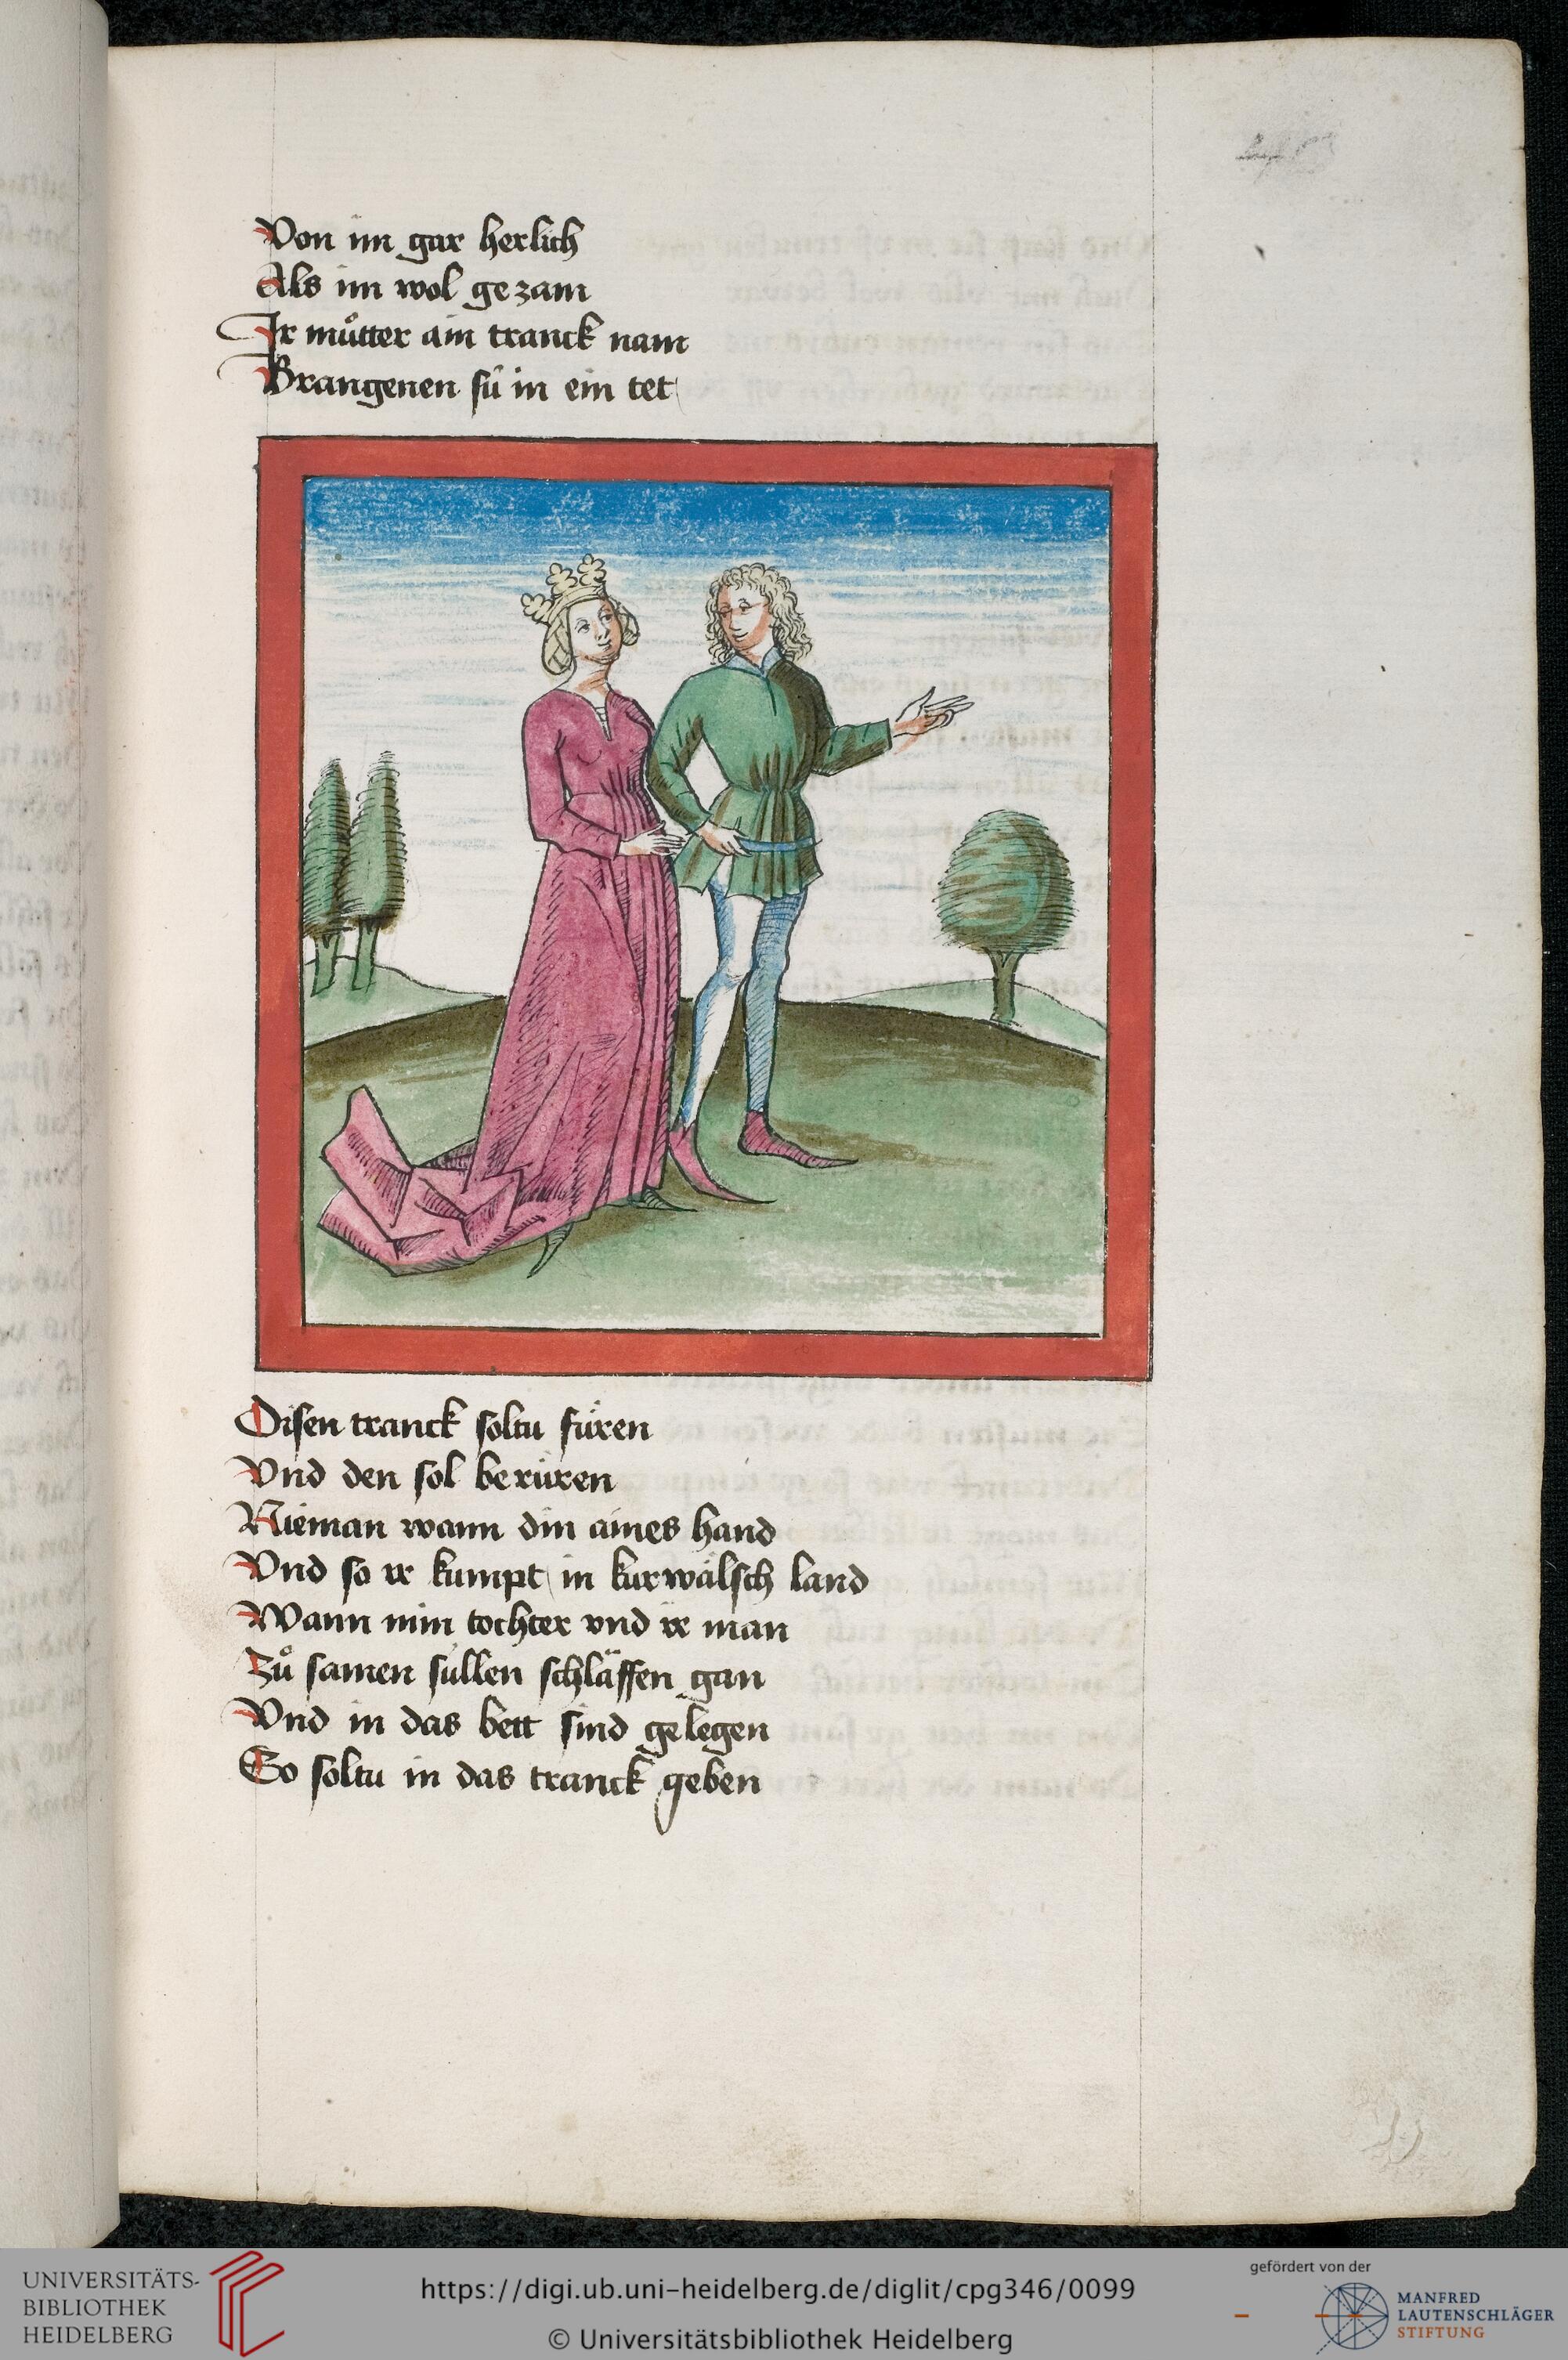 Von im gar herlich
Als im wol gezam
Ir můtter ain tranck nam
Brangenen sü in ein tet
Disen tranck soltu füren
Vnd den sol berüren
Nieman wann din aines hand
Vnd so ir kumpt in kurwälsch land
Wann min tochter vnd ir man
Zů samen süllen schläffen gan
Vnd in das bett sind gelegen
So soltu in das tranck geben
UNIVERSITÄTS-
BIBLIOTHEK
HEIDELBERG
https://digi.ub.uni-heidelberg.de/diglit/cpg346/0099
© Universitätsbibliothek Heidelberg
gefördert von der
MANFRED
LAUTENSCHLÄGER
STIFTUNG